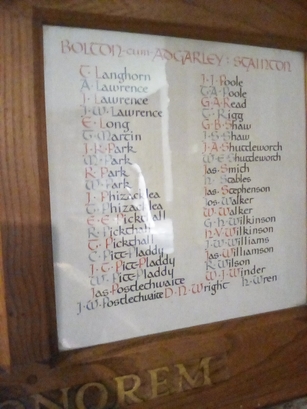 BOLTON cum ADGARLEY : STAINTON
T. Langhorn
A. Lawrence
J. Lawrence
J. W. Lawrence
E. Long
T. Martin
J. K. Park
W. Park
R. Park
W. Park
J. Phizacklea
T. Phizacklea
E. E. Pickthall
R. Pickthall
T. Pickthall
C. Pitt-Pladdy
J. G. Pitt-Pladdy
W. Pitt-Pladdy
Jas. Postlethwaite
J. W. Postlethwaite
J. J. Poole
T. A. Poole
G. A. Read
C. Rigg
G. B. Shaw
Shaw
J. A. Shuttleworth
W. E. Shuttleworth
Jas. Smith
Stables
Jas. Stephenson
Jos. Walker
W. Walker
G. H. Wilkinson
Wilkinson
J. W. Williams
Jas. Williamson
R. Wilson
W. J. Winder
D. N. Wright
H. Wren
NOREM